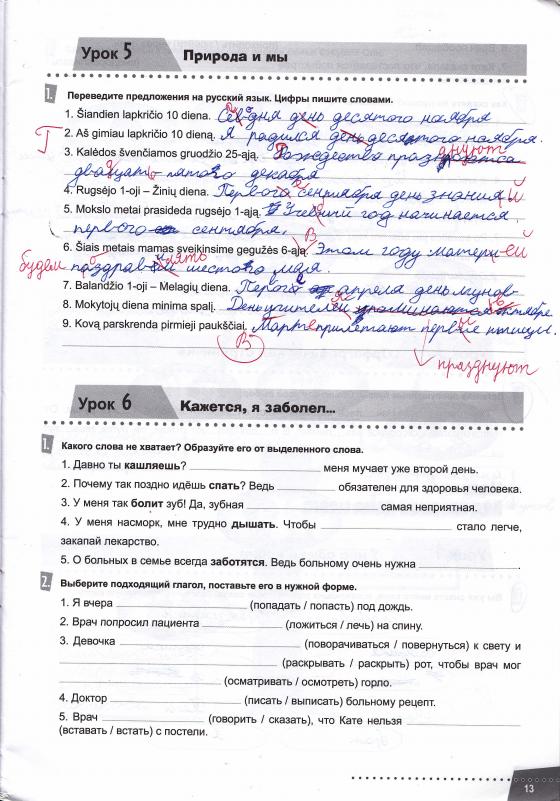 Урок 5 Природа и мы
1. Переведите предложения на русский язык. Цифры пишите словами.
1. Šiandien lapkričio 10 diena. день десятого ноября
2. Aš gimiau lapkričio 10 dieną. Я родился день десятого ноября.
3. Kalėdos švenčiamos gruodžio 25-ąją. Рождества
декабря
4. Rugsėjo 1-oji – Žinių diena. Первого сентября день знания й
5. Mokslo metai prasideda rugsėjo 1-ąją. Учебний год начинается
первого сентября.
6. Šiais metais mamas sveikinsime gegužės 6-ąją. В Этом году матери ей
будем поздрав шестого мая.
7. Balandžio 1-oji – Melagių diena. апреля день лгунов
8. Mokytojų diena minima spalį. День учителей октябре
9. Kovą parskrenda pirmieji paukščiai. Март прилетают первие птицы.
В
празднуют
Урок 6 Кажется, я заболел...
1. Какого слова не хватает? Образуйте его от выделенного слова.
1. Давно ты кашляешь? меня мучает уже второй день.
2. Почему так поздно идёшь спать? Ведь обязателен для здоровья человека.
3. У меня так болит зуб! Да, зубная самая неприятная.
4. У меня насморк, мне трудно дышать. Чтобы стало легче,
закапай лекарство.
5. О больных в семье всегда заботятся. Ведь больному очень нужна .
2. Выберите подходящий глагол, поставьте его в нужной форме.
1. Я вчера (попадать / попасть) под дождь.
2. Врач попросил пациента (ложиться / лечь) на спину.
3. Девочка (поворачиваться / повернуться) к свету и
(раскрывать / раскрыть) рот, чтобы врач мог
(осматривать / осмотреть) горло.
4. Доктор (писать / выписать) больному рецепт.
5. Врач (говорить / сказать), что Кате нельзя
(вставать / встать) с постели.
13